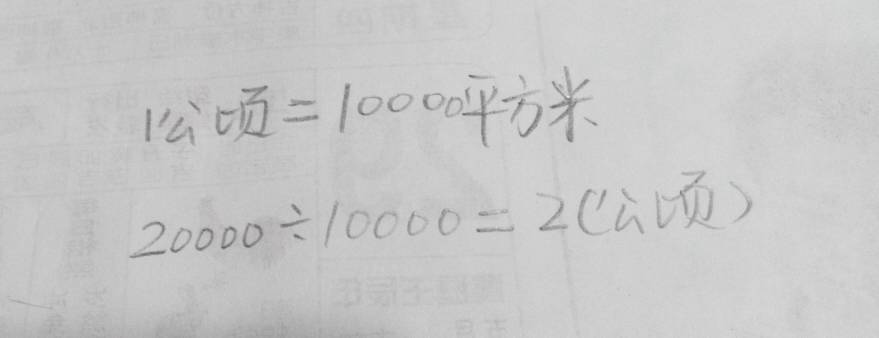 1公顷=10000平方米
20000÷10000=2(公顷)